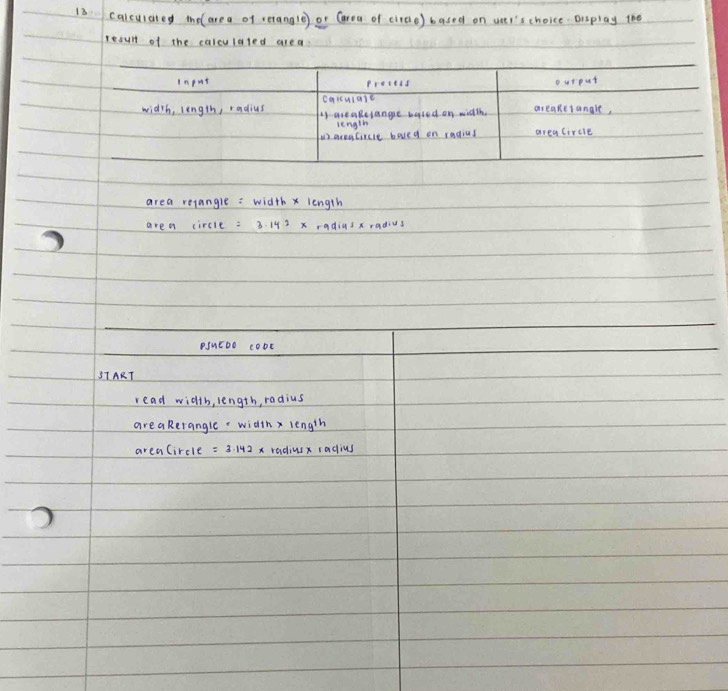 13 Calculated the (area of retangle) or (area of circle) based on user's choice. Display the
result of the calculated area.
input process output
width, length, radius
calculate
i) areaRetangle based on width,
length
ii) areaCircle based on radius
areaRetangle,
areaCircle
area retangle = width x length
area circle = 3.142 x radius x radius
PSUEDO CODE
START
read width, length, radius
areaRetangle = width x length
areaCircle = 3.142 x radius x radius